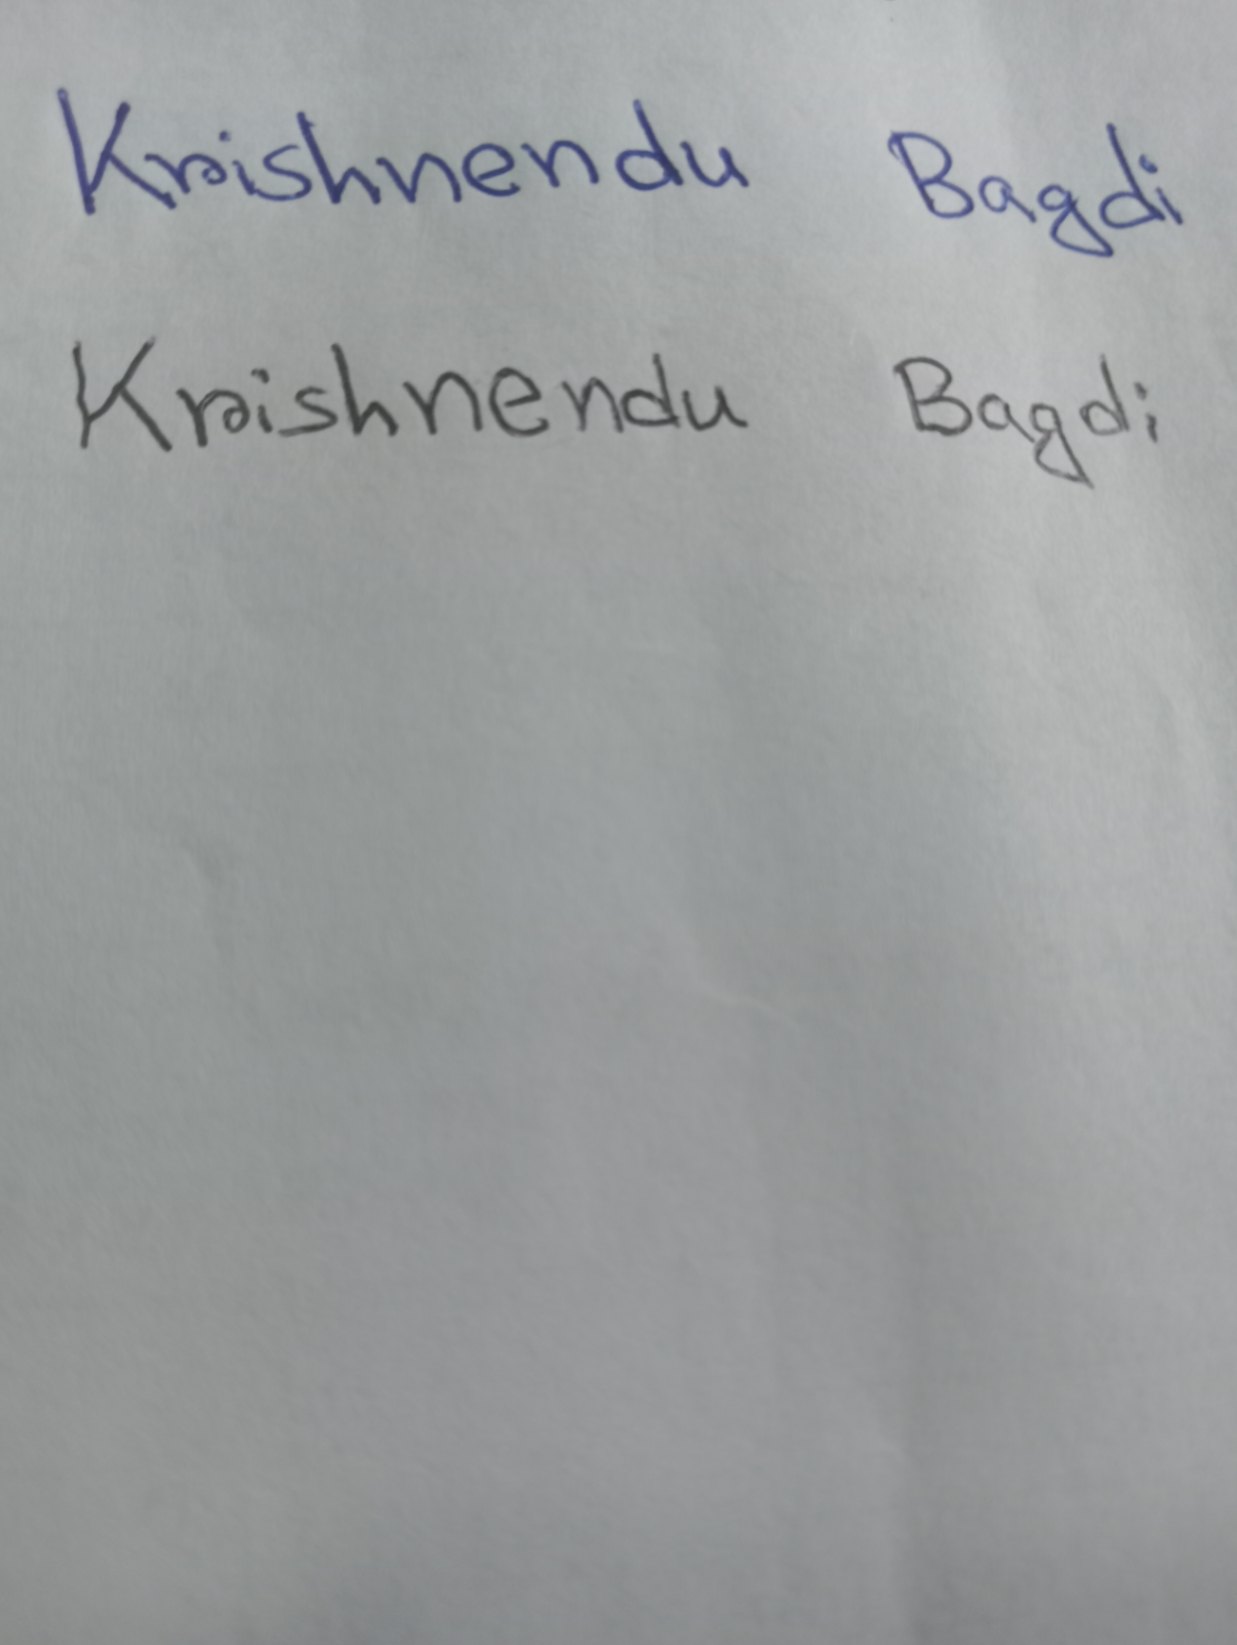 Krishnendu Bagdi
Krishnendu Bagdi